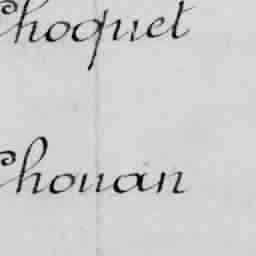 Choquet
Chouan